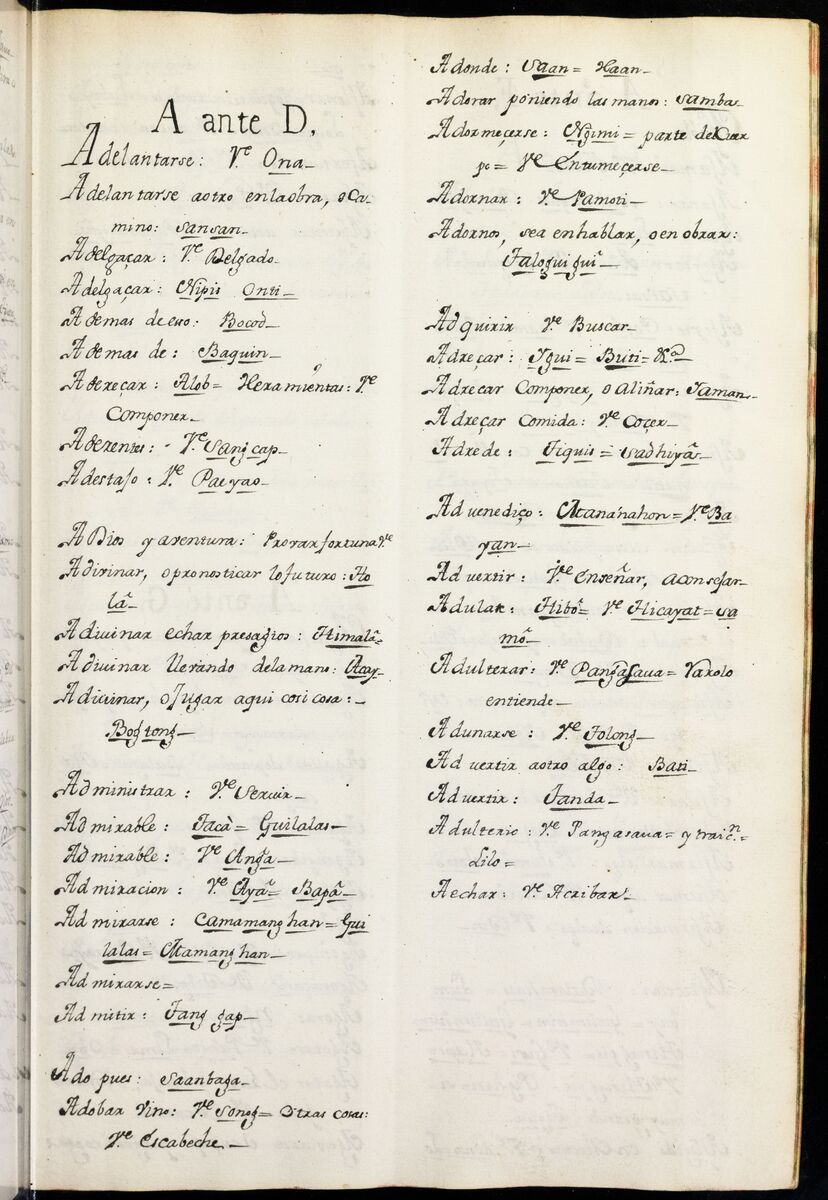 A ante D.
Adelantarse: Vᵉ Ona_
Adelantarse aotro enlaobra, oCa-
mino: sansan_
Adelgaçar: Vᵉ Delgado
Adelgaçar: Nipis Onti_
Ademas de eso: Bocod_
Ademas de: Baquin_
Adereçar: Alob= Heramientas: Vᵉ
Componer_
Aderentes: Vᵉ Sangcap_
Adestajo: Vᵉ Paeyao_
ADios y aventura: Provar fortuna Vᵉ
Adivinar, o pronosticar lofuturo: Ho
lâ_
Adivinar echar presagios: Himalâ_
Adivinar llevando delamano: Acay_
Adivinar, o Jugar aqui cosi cosa:_
Bogtong_
Administrar: Vᵉ Servir_
Admirable: Tacà= Guilalas_
Admirable: Vᵉ Anga_
Admiracion: Vᵉ Ayâ= Bapâ_
Admirarse: Camamanghan= Gui
lalas= Atamanghan_
Admirarse=
Admitir: Tanggap_
Ado pues: Saanbaga_
Adobar Vino: Vᵉ Sonog= Otras cosas:
Vᵉ Escabeche_
Adonde: Saan= Haan_
Adorar poniendo las manos: Samba_
Adormeçerse: Ngimi= parte del Cuer
po= Vᵉ Entumeçerse_
Adornar: Vᵉ Pamoti_
Adornos, sea enhablar, o en obrar:
Taloguigui_
Adquirir Vᵉ Buscar_
Adreçar: Igui= Buti= &ᵃ_
Adrecar Componer, o aliñar: Taman_
Adreçar Comida: Vᵉ Coçer_
Adrede: Tiquis= Sadhiyâ_
Advenediço: Atananahon= Vᵉ Ba
yan_
Advertir: Vᵉ Enseñar, aconsejar_
Adular: Hibô= Vᵉ Hicayat= Sa
mô_
Adulterar: Vᵉ Pangasaua= Varolo
entiende_
Adunarse: Vᵉ Tolong_
Advertir aotro algo: Bati_
Advertir: Tanda_
Adulterio: Vᵉ Pangasaua= y traicⁿ=
Lilo=
Aechar: Vᵉ Acribar_